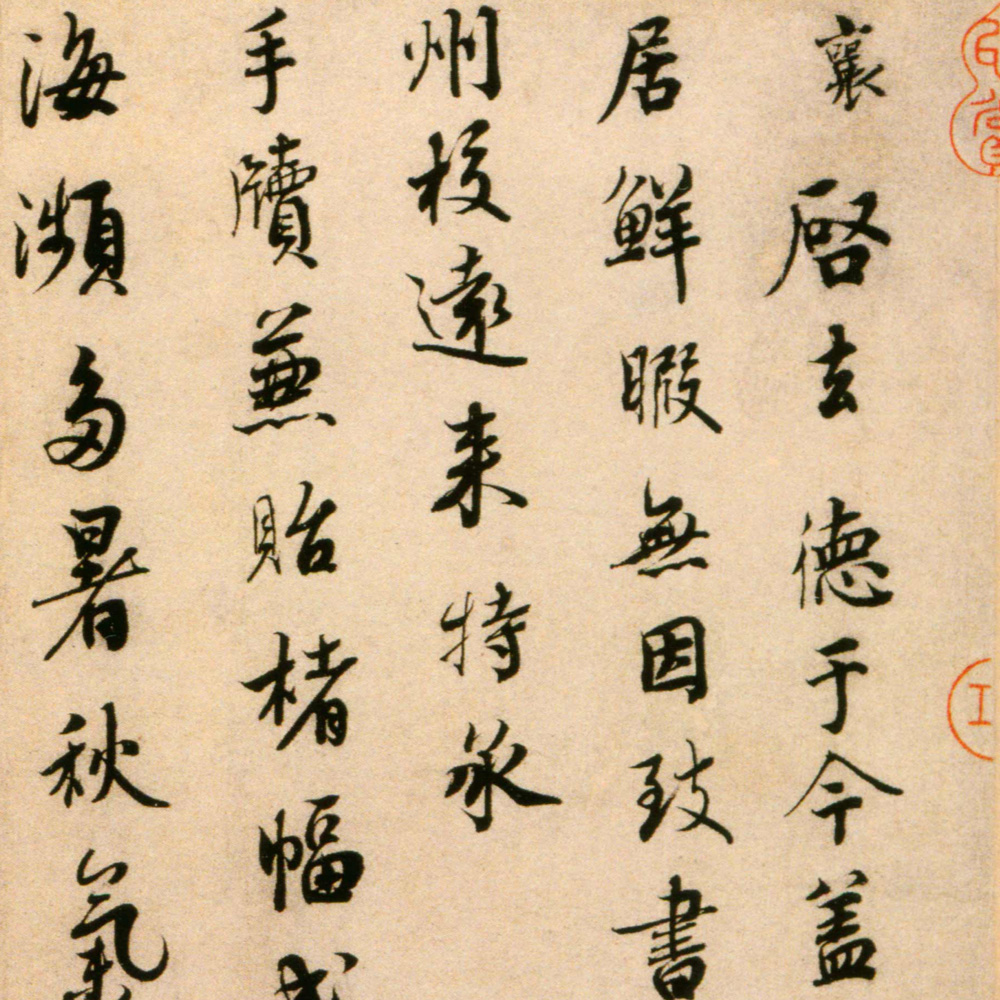 襄啓去德于今蓋
居鮮暇無因致書
州校遠来特承
手牘兼貽楮幅
海瀕多暑秋氣